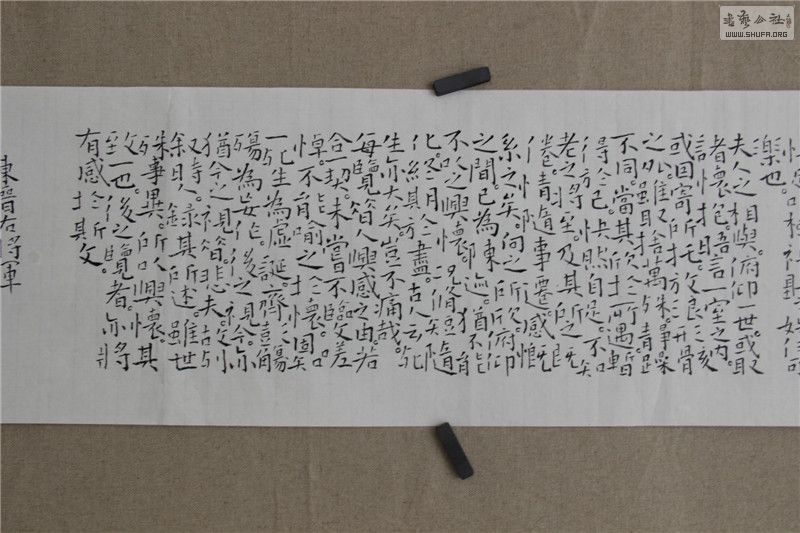 娱信可
樂也。
夫人之相與俯仰一世或取
諸懷抱。晤言一室之内。
或因寄所托放浪形骸
之外。雖取舍萬殊。静躁
不同。當其欣於所遇暫
得於己。快然自足。不知
老之將至。及其所之既
倦。情隨事遷。感慨
系之矣。向之所欣俯仰
之間。已為陳迹。猶不能
不以之興懷。況脩短隨
化。終期於盡。古人云死
生亦大矣。豈不痛哉。
每覽昔人興感之由。若
合一契。未嘗不臨文嗟
悼。不能喻之於懷。固知
一死生為虛誕。齊彭
殤為妄作。後之視今。亦
猶今之視昔。悲夫。故列
叙時人。錄其所述。雖世
殊事異。所以興懷。其
致一也。後之覽者。亦將
有感於斯文。
東晉右將軍
書藝公社
WWW.SHUFA.ORG